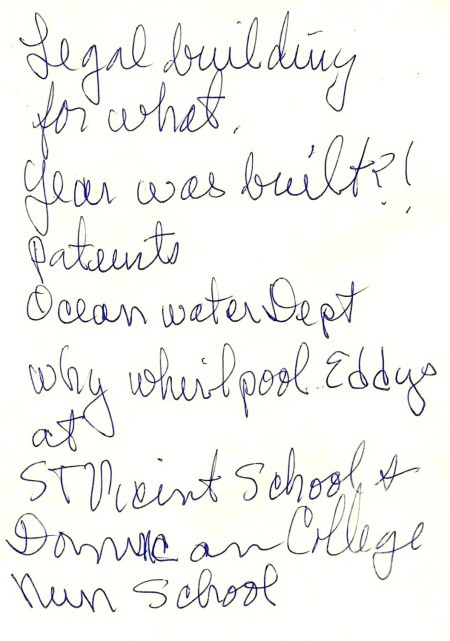 Legal building
for what.
Year was built?!
patents
Ocean water Dept
why whirlpool Eddys
at
ST Vicint School &
Dominican College
Nun School